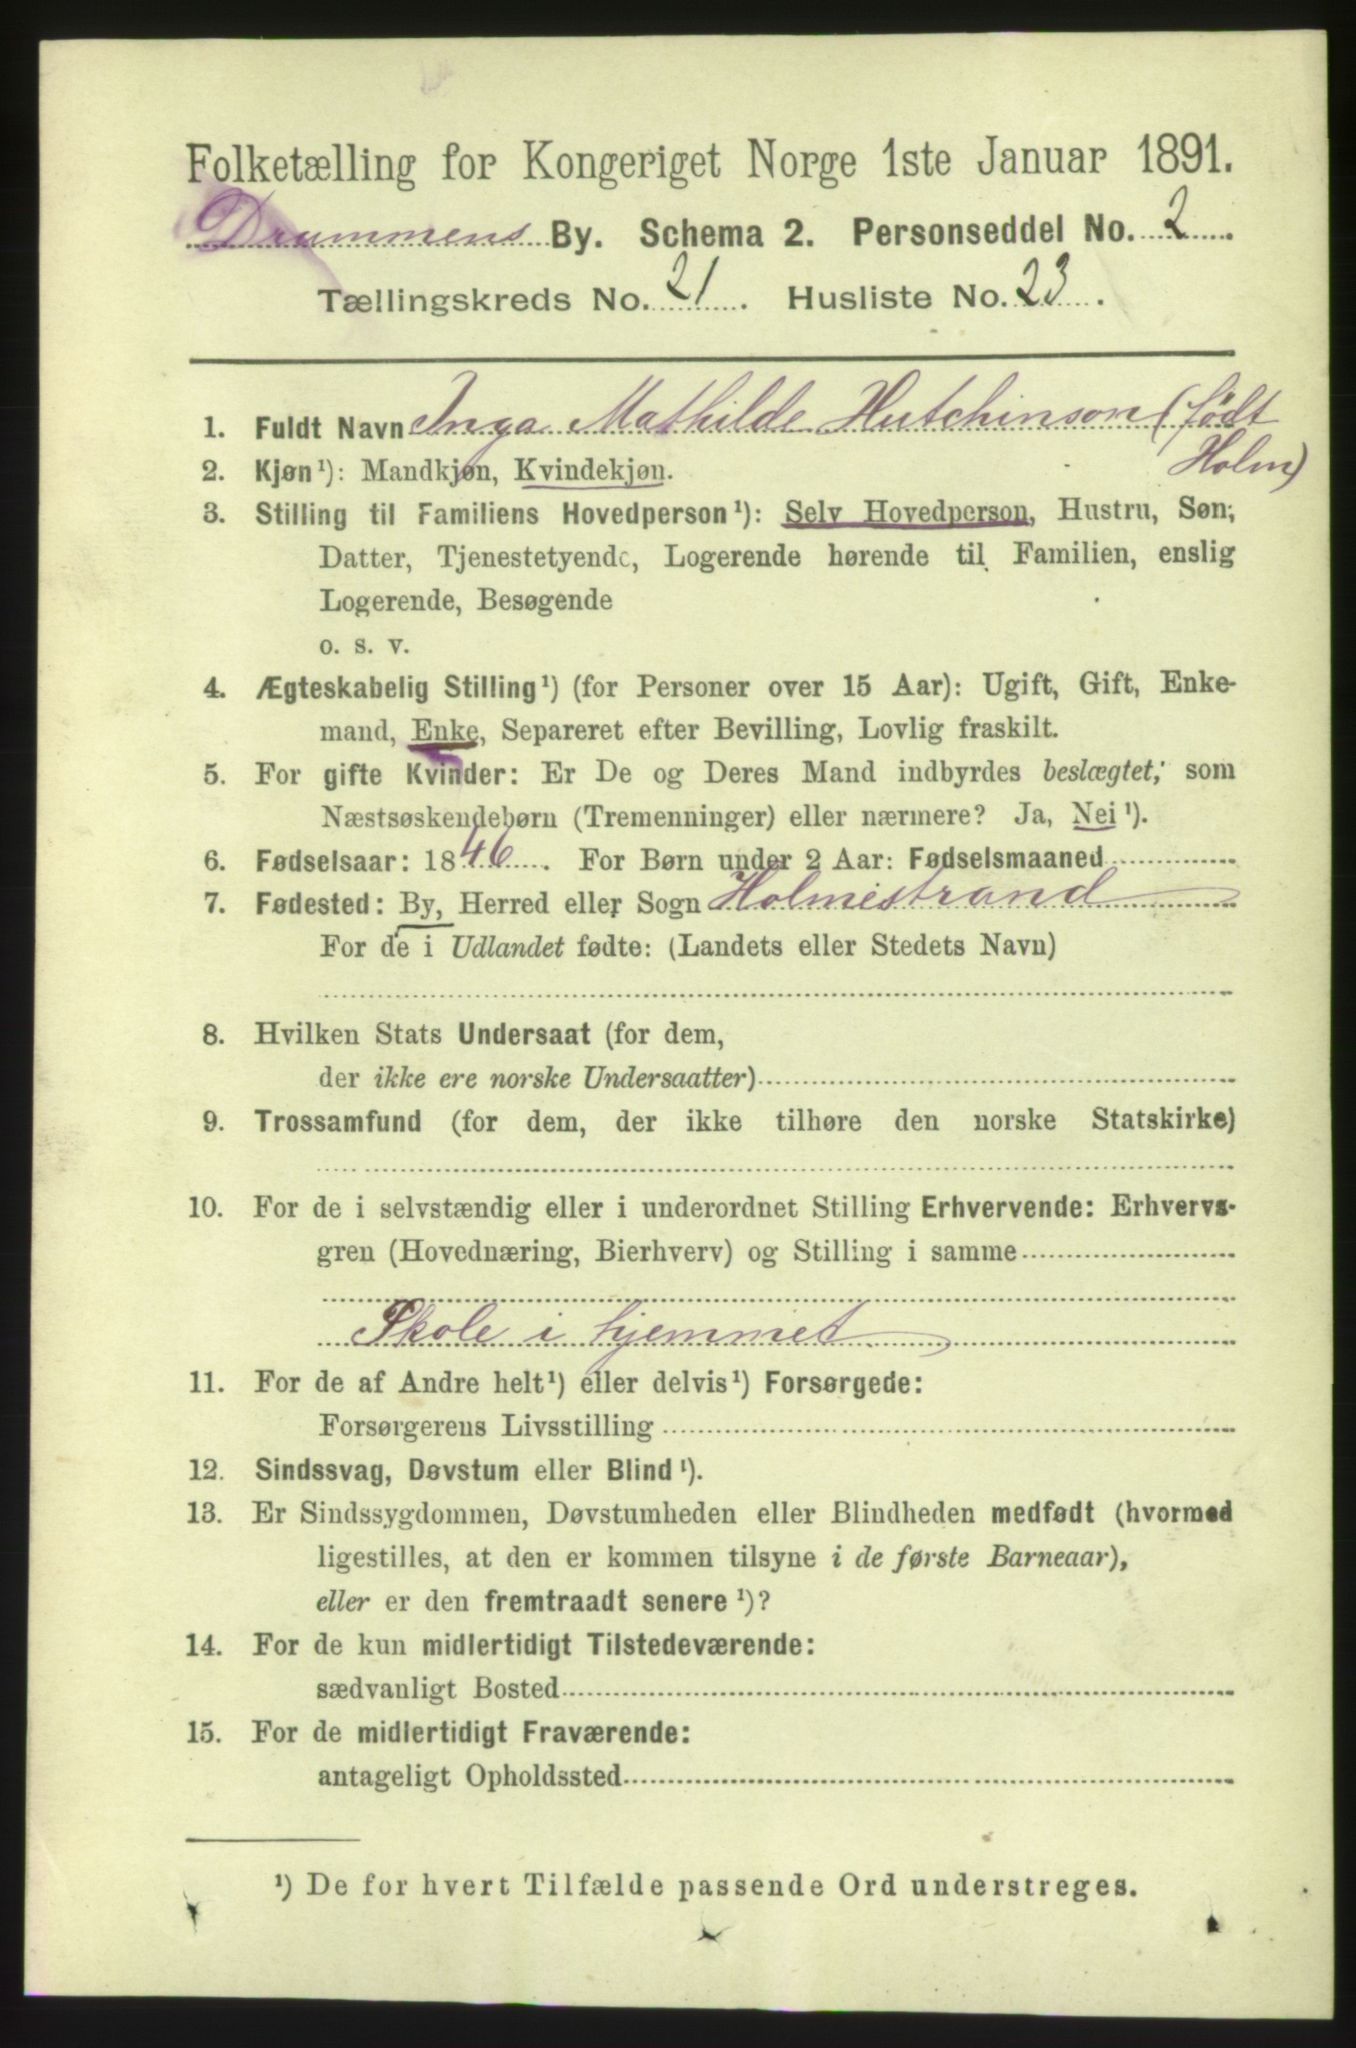 Folketælling for Kongeriget Norge 1ste Januar 1891.
Drammens By. Schema 2. Personseddel No. 2.
Tællingskreds No. 21. Husliste No. 23.
1. Fuldt Navn Inga Mathilde Hutchinson (født
Holm)
2. Kjøn¹): Mandkjøn, Kvindekjøn.
3. Stilling til Familiens Hovedperson¹): Selv Hovedperson, Hustru, Søn,
Datter, Tjenestetyende, Logerende hørende til Familien, enslig
Logerende, Besøgende
o. s. v.
4. Ægteskabelig Stilling¹) (for Personer over 15 Aar): Ugift, Gift, Enke-
mand, Enke, Separeret efter Bevilling, Lovlig fraskilt.
5. For gifte Kvinder: Er De og Deres Mand indbyrdes beslægtet, som
Næstsøskendebørn (Tremenninger) eller nærmere? Ja, Nei¹).
6. Fødselsaar: 1846. For Børn under 2 Aar: Fødselsmaaned
7. Fødested: By, Herred eller Sogn Holmestrand
For de i Udlandet fødte: (Landets eller Stedets Navn)
8. Hvilken Stats Undersaat (for dem,
der ikke ere norske Undersaatter)
9. Trossamfund (for dem, der ikke tilhøre den norske Statskirke)
10. For de i selvstændig eller i underordnet Stilling Erhvervende: Erhvervs-
gren (Hovednæring, Bierhverv) og Stilling i samme
Skole i hjemmet.
11. For de af Andre helt¹) eller delvis¹) Forsørgede:
Forsørgerens Livsstilling
12. Sindssvag, Døvstum eller Blind¹).
13. Er Sindssygdommen, Døvstumheden eller Blindheden medfødt (hvormed
ligestilles, at den er kommen tilsyne i de første Barneaar),
eller er den fremtraadt senere¹)?
14. For de kun midlertidigt Tilstedeværende:
sædvanligt Bosted
15. For de midlertidigt Fraværende:
antageligt Opholdssted
¹) De for hvert Tilfælde passende Ord understreges.